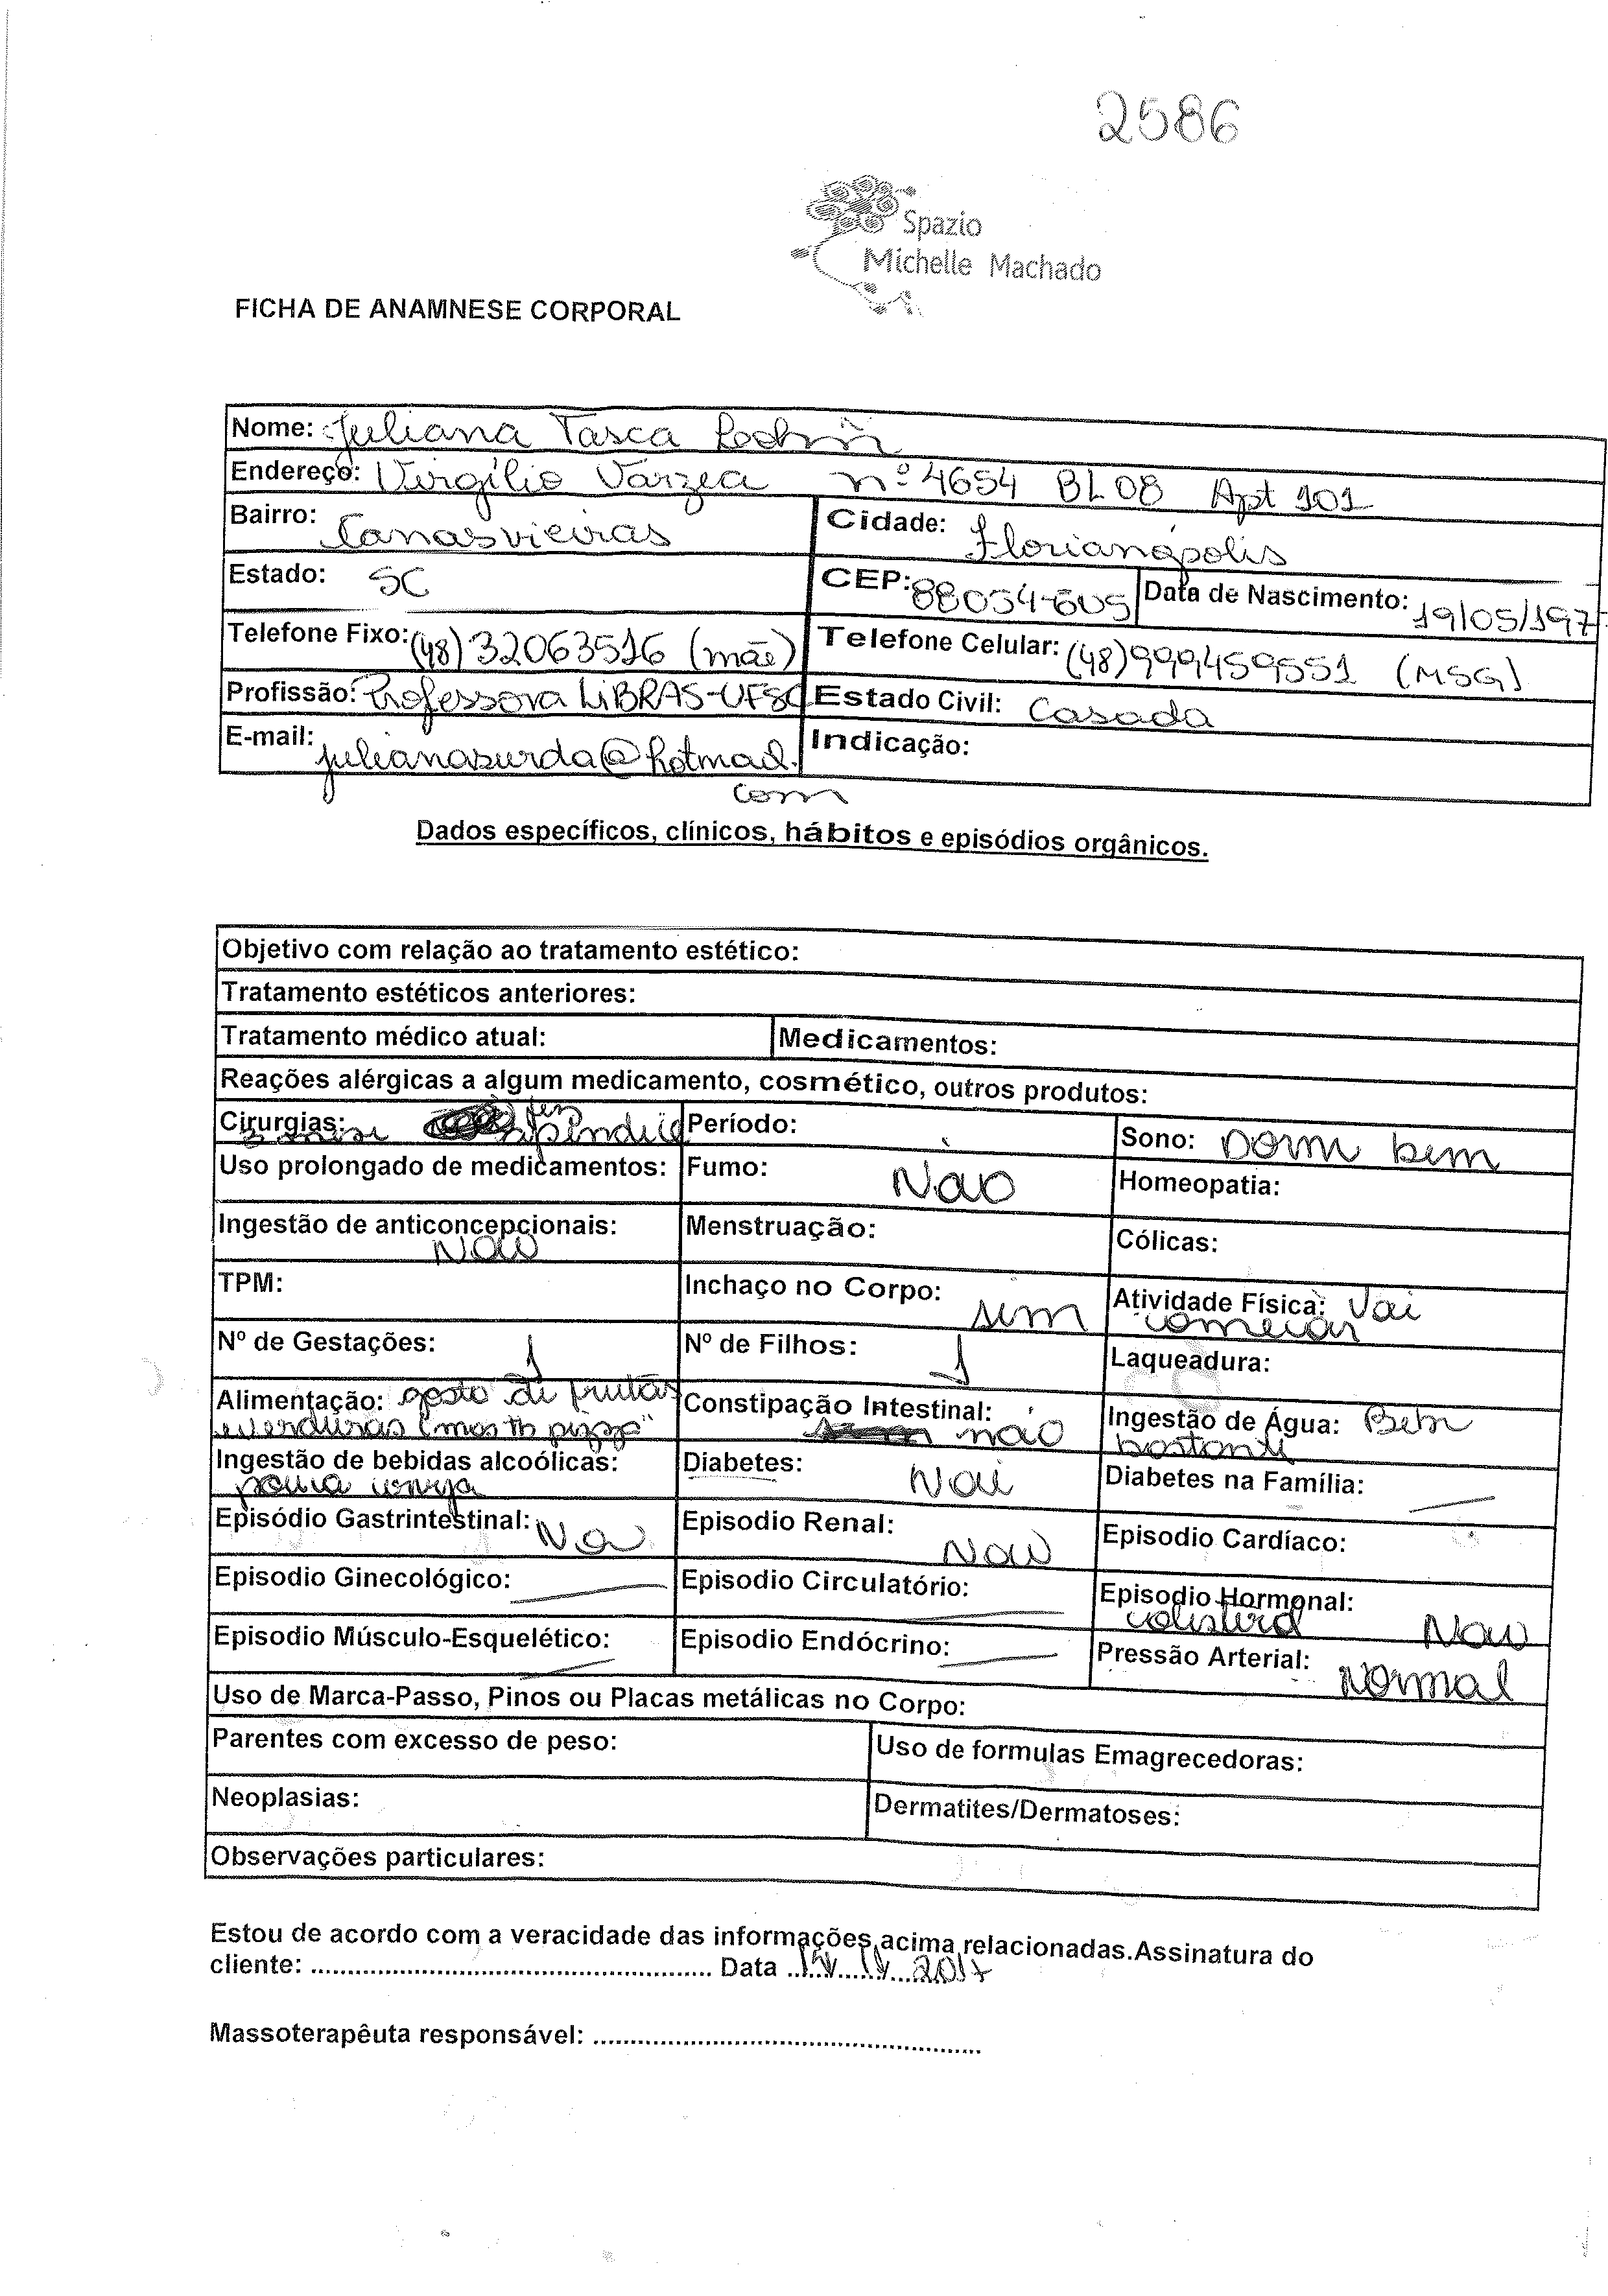 2586
Spazio
Michelle Machado
FICHA DE ANAMNESE CORPORAL
Nome: Juliana Tasca
Endereço: Virgílio Várzea nº 4654 BL 08 Apt 101
Bairro: Canasvieiras Cidade: Florianópolis
Estado: SC CEP: 88054-605 Data de Nascimento: 19/05/197
Telefone Fixo: (48) 32063516 (mãe) Telefone Celular: (48) 999459551 (MSG)
Profissão: Professora LiBRAS-UFSC Estado Civil: Casada
E-mail: julianasurda@hotmail. Indicação:
com
Dados específicos, clínicos, hábitos e episódios orgânicos.
Objetivo com relação ao tratamento estético:
Tratamento estéticos anteriores:
Tratamento médico atual: Medicamentos:
Reações alérgicas a algum medicamento, cosmético, outros produtos:
Cirurgias: Período: Sono: Dorm bem
Uso prolongado de medicamentos: Fumo: Não Homeopatia:
Ingestão de anticoncepcionais: Não Menstruação: Cólicas:
TPM: Inchaço no Corpo: sim Atividade Física: Vai
começar
Nº de Gestações: 1 Nº de Filhos: 1 Laqueadura:
Alimentação: gosta de frutas Constipação Intestinal: não Ingestão de Água: Bebe
e verduras bastante
Ingestão de bebidas alcoólicas: Diabetes: Não Diabetes na Família:
pouca
Episódio Gastrintestinal: Não Episodio Renal: Não Episodio Cardíaco:
Episodio Ginecológico: Episodio Circulatório: Episodio Hormonal:
colesterol Não
Episodio Músculo-Esquelético: Episodio Endócrino: Pressão Arterial: Normal
Uso de Marca-Passo, Pinos ou Placas metálicas no Corpo:
Parentes com excesso de peso: Uso de formulas Emagrecedoras:
Neoplasias: Dermatites/Dermatoses:
Observações particulares:
Estou de acordo com a veracidade das informações acima relacionadas.Assinatura do
cliente: ........................................................ Data 2017
Massoterapêuta responsável: ......................................................